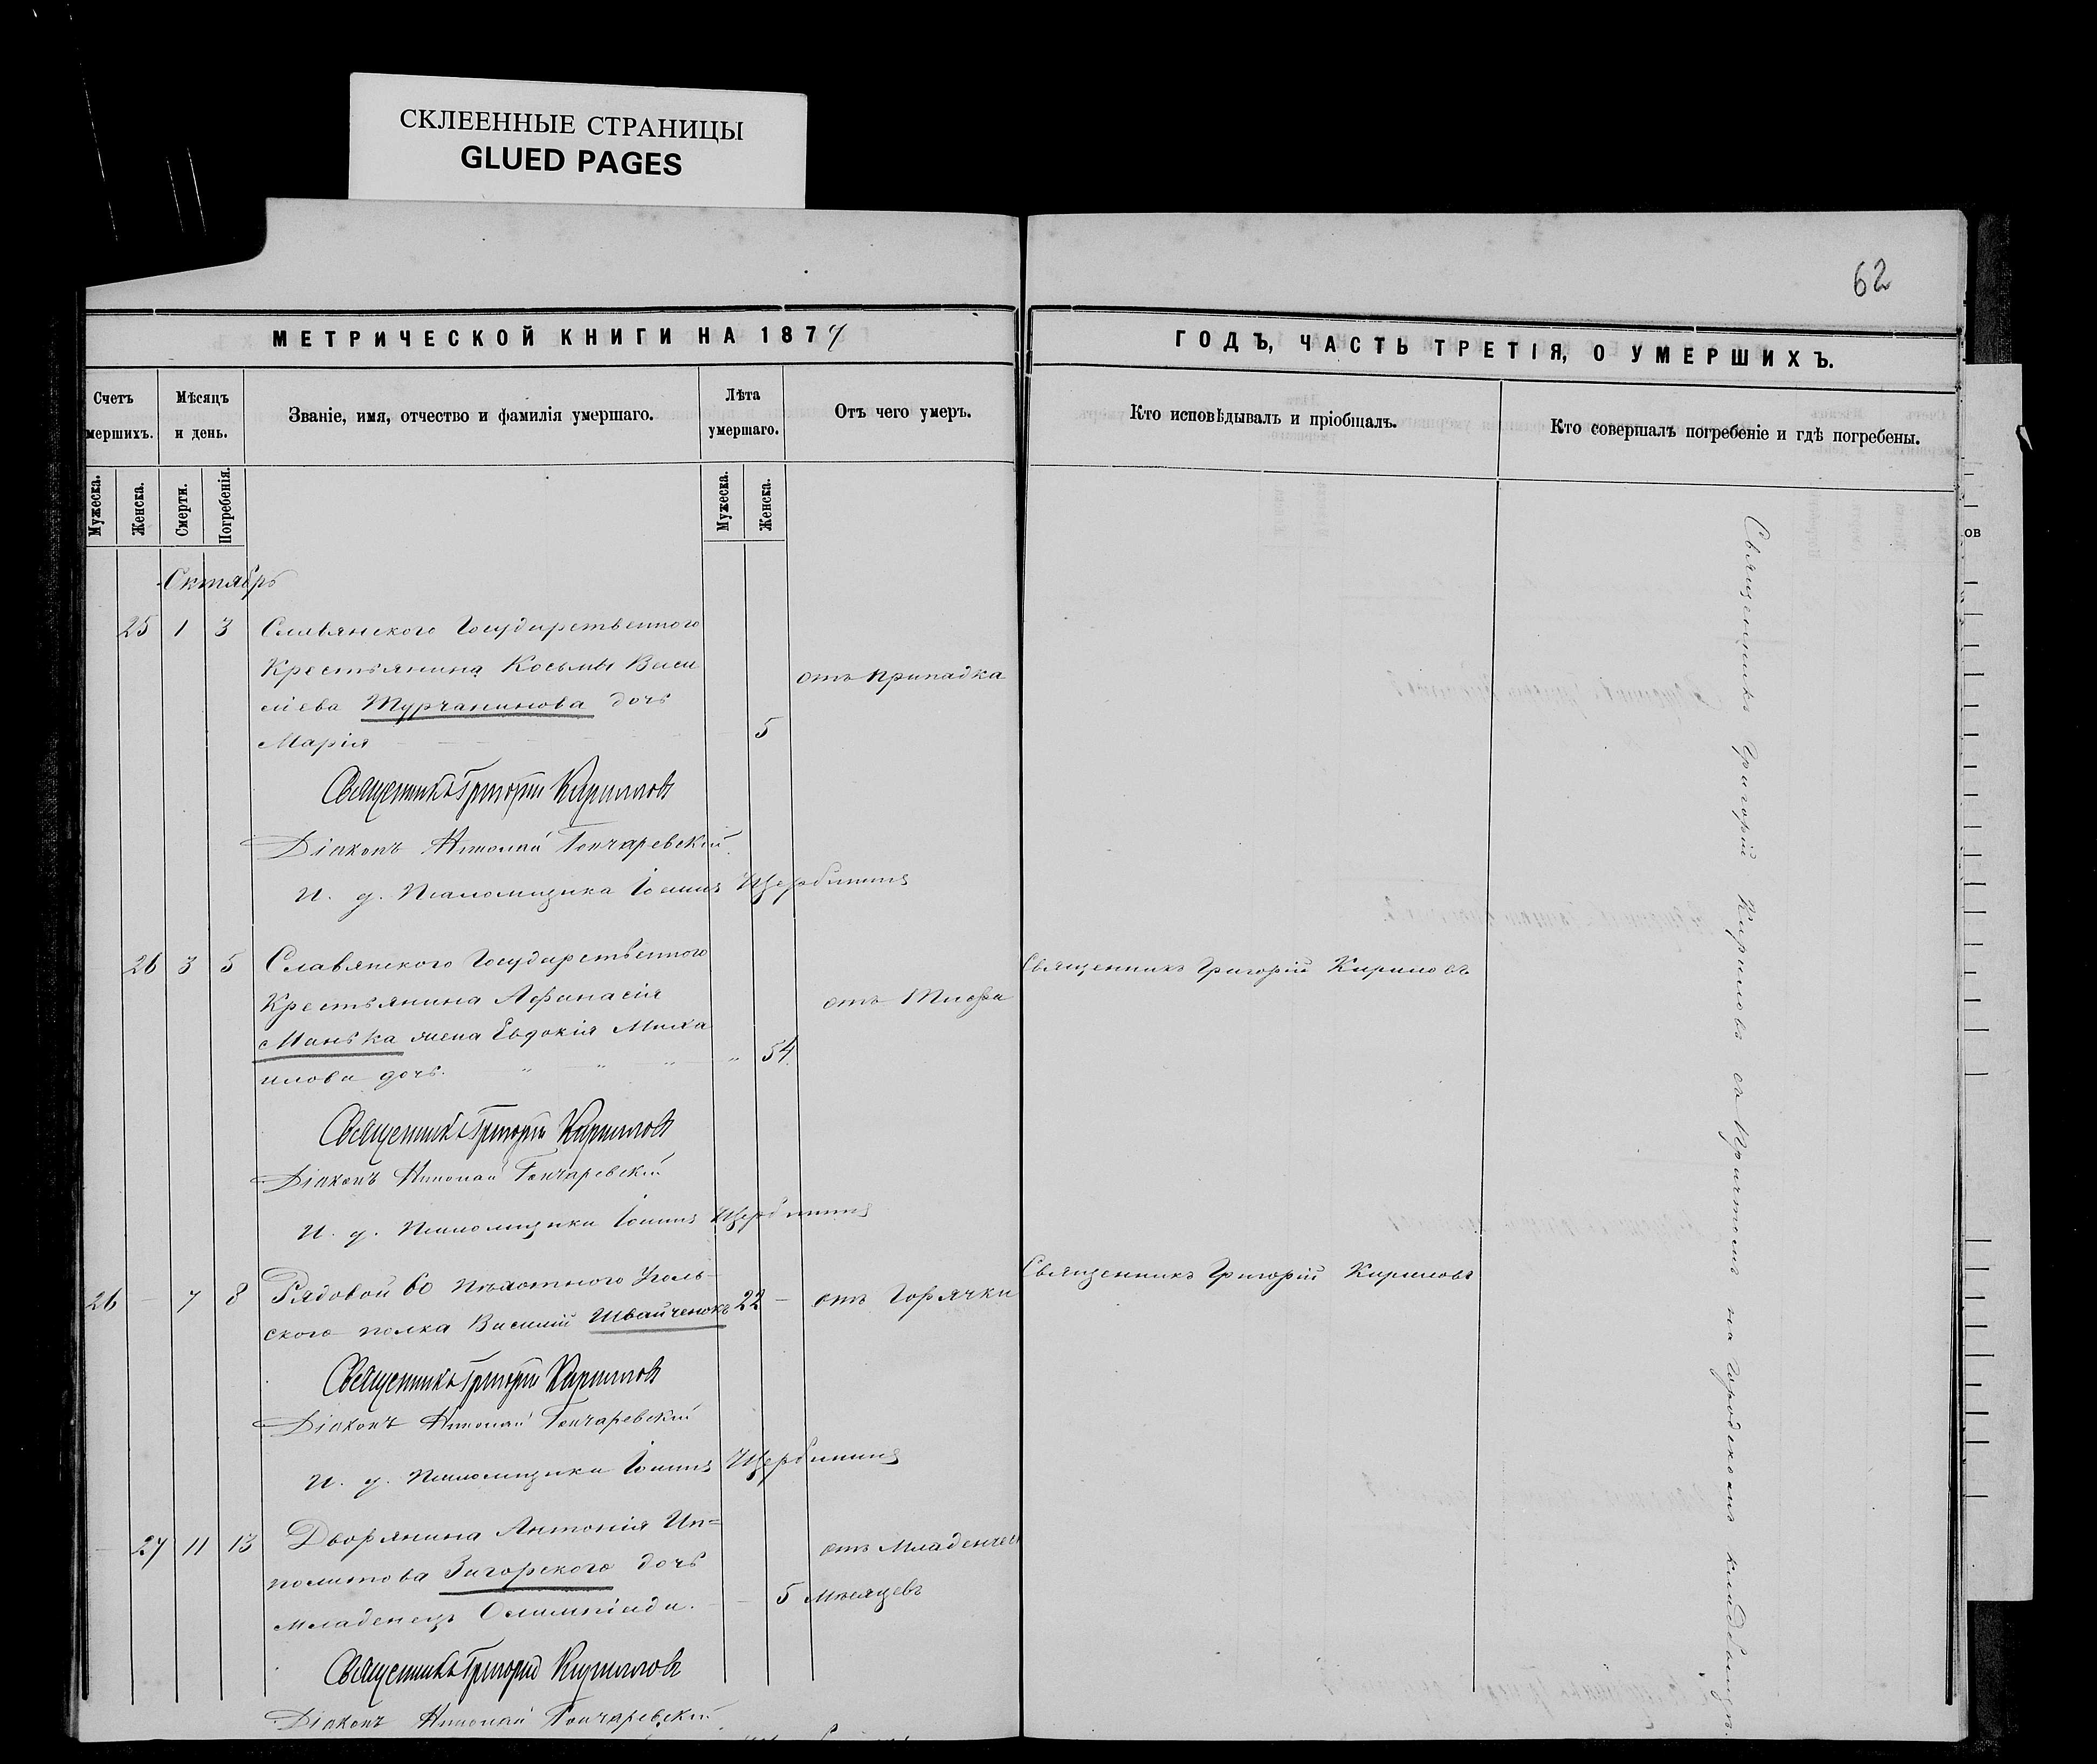 СКЛЕЕННЫЕ СТРАНИЦЫ
GLUED PAGES
62
МЕТРИЧЕСКОЙ КНИГИ НА 1874
ГОДЪ, ЧАСТЬ ТРЕТІЯ, О УМЕРШИХЪ.
Счетъ
мершихъ.
Мѣсяцъ
и день.
Званіе, имя, отчество и фамилія умершаго.
Лѣта
умершаго.
Отъ чего умеръ.
Кто исповѣдывалъ и пріобщалъ.
Кто совершалъ погребеніе и гдѣ погребены.
Мужеска.
Женска.
Смерти.
Погребенія.
Мужеска.
Женска.
Октябрь
25 1 3 Славянского Государственного
Крестьянина Косьмы Васи
лієва Турчанинова дочь
отъ припадка
Марія 5
Священникъ Григорій Кириловъ
Діаконъ Николай Гончаревскій
И. д. Псаломщика Іоаннъ Щербининъ
26 3 5 Славянского Государственного
Крестьянина Афанасія
отъ Тифа
Манька жена Евдокія Миха
илова дочь. 54
Священникъ Григорій Кириловъ
Священникъ Григорій Кириловъ
Діаконъ Николай Гончаревскій
И. д. Псаломщика Іоаннъ Щербининъ
26 - 7 8 Рядовой 60 Пѣхотного
ского полка Василій Швайченокъ 22 - отъ Горячки
Священникъ Григорій Кириловъ
Священникъ Григорій Кириловъ
Діаконъ Николай Гончаревскій
И. д. Псаломщика Іоаннъ Щербининъ
27 11 13 Дворянина Антонія Ип=
политова Загорского дочь
отъ Младенчес
младенецъ Олимпіада. 5 Мѣсяцевъ
Священникъ Григорій Кириловъ
Діаконъ Николай Гончаревскій
Священникъ Григорій Кириловъ съ Причтомъ на Городскомъ кладбищѣ.
ов